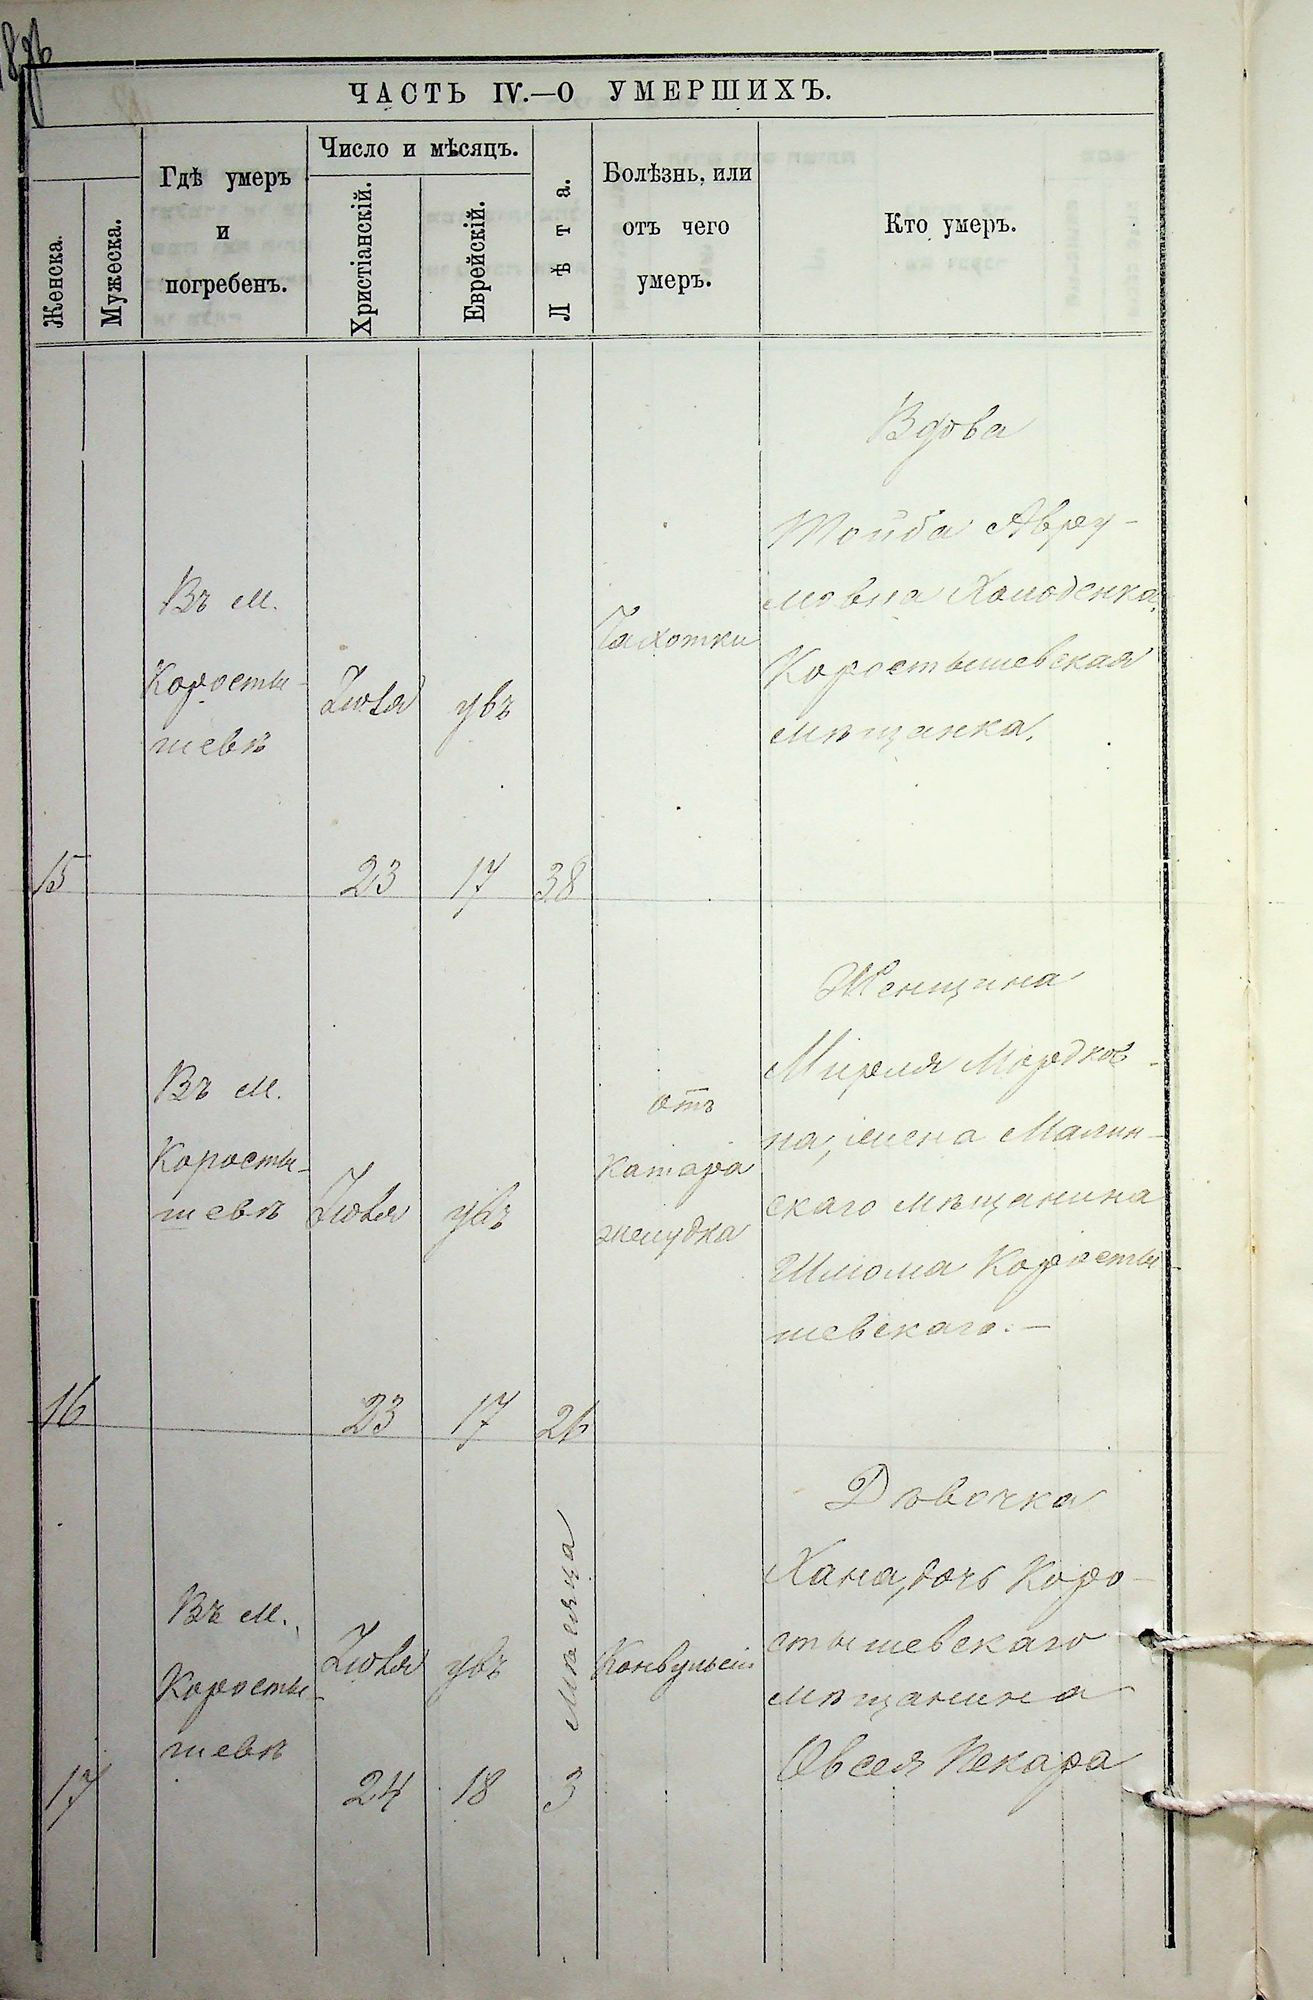 ЧАСТЬ IV.—О УМЕРШИХЪ.
Женска.
Мужеска.
Гдѣ умеръ
и
погребенъ.
Число и мѣсяцъ.
Христіанскій.
Еврейскій.
Лѣта.
Болѣзнь, или
отъ чего
умеръ.
Кто умеръ.
15
Въ м.
Коросты-
шевѣ
Іюля
23
увъ
17
38
Чахотки
Вдова
Тойба Авру-
мовна Холоденка,
Коростышевская
мѣщанка.
16
Въ м.
Коросты-
шевѣ
Іюля
23
увъ
17
26
отъ
катара
желудка
Женщина
Миреля Мордков-
на, жена Малин-
скаго мѣщанина
Шлиома Коросты-
шевскаго.—
17
Въ м.
Коросты-
шевѣ
Іюля
24
увъ
18
3 мѣсяца
Конвульсіи
Дѣвочка
Хана, дочь Коро-
стышевскаго
мѣщанина
Овсея Пекара